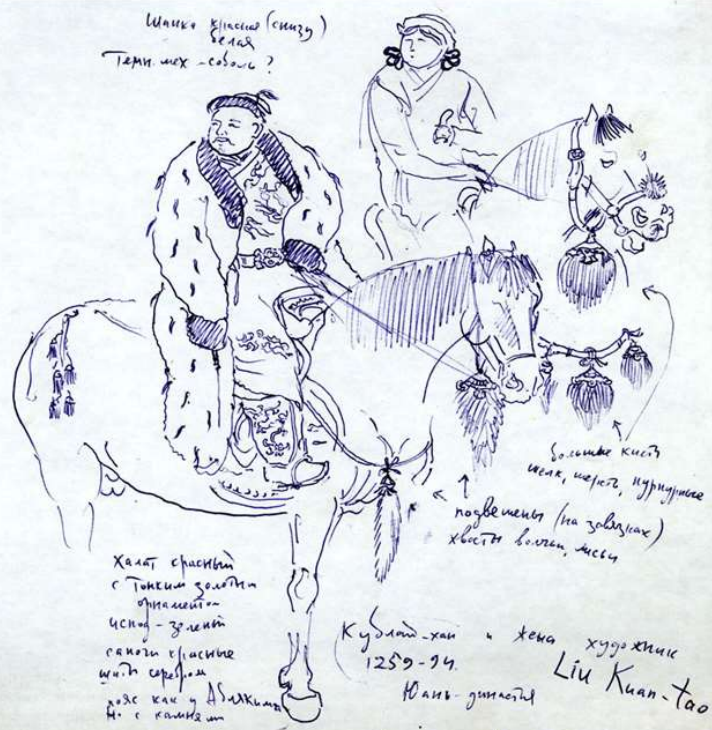 Шапка красная (снизу)
белая
Темн. мех - соболь?
большие кисти
шелк, шерсть, пурпурные
подвешены (на завязках)
хвосты волчьи, лисьи
Халат красный
с тонким золотым
орнаментом
испод - зеленый
сапоги красные
шиты серебром
пояс как у
но с камнями
Кублай-хан и жена художник
1259-94.
Liu Kuan-tao
Юань-династия